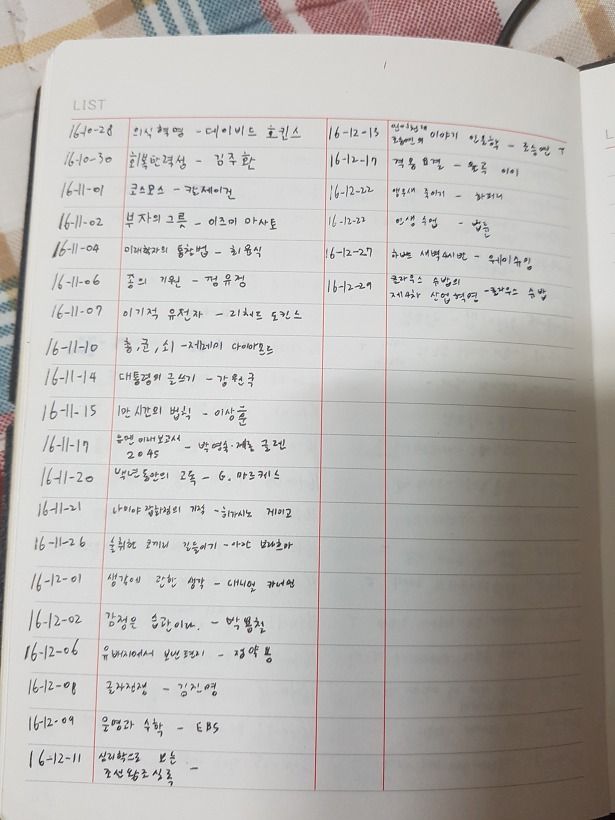 LIST
16-10-28 의식혁명 - 데이비드 호킨스
16-10-30 회복탄력성 - 김주환
16-11-01 코스모스 - 칼세이건
16-11-02 부자의 그릇 - 이즈미 마사토
16-11-04 미래학자의 통찰법 - 최윤식
16-11-06 종의 기원 - 정유정
16-11-07 이기적 유전자 - 리처드 도킨스
16-11-10 총, 균, 쇠 - 제레미 다이아몬드
16-11-14 대통령의 글쓰기 - 강원국
16-11-15 1만 시간의 법칙 - 이상훈
16-11-17 유엔미래보고서
2045 - 박영숙·제롬 글렌
16-11-20 백년동안의 고독 - G. 마르케스
16-11-21 나미야 잡화점의 기적 - 히가시노 게이고
16-11-26 술취한 코끼리 길들이기 - 아잔 브라흐마
16-12-01 생각에 관한 생각 - 대니얼 카너먼
16-12-02 감정은 습관이다. - 박용철
16-12-06 유배지에서 보낸 편지 - 정약용
16-12-08 글자전쟁 - 김진명
16-12-09 문명과 수학 - EBS
16-12-11 심리학으로 보는
조선왕조실록 -
16-12-13
이야기 인문학 - 조승연
16-12-17 격몽요결 - 율곡 이이
16-12-22 앵무새 죽이기 - 하퍼리
16-12-23 인생수업 - 법륜
16-12-27 하버드 새벽 4시반 - 웨이슈잉
16-12-29 클라우스 슈밥의
제4차 산업혁명 - 클라우스 슈밥